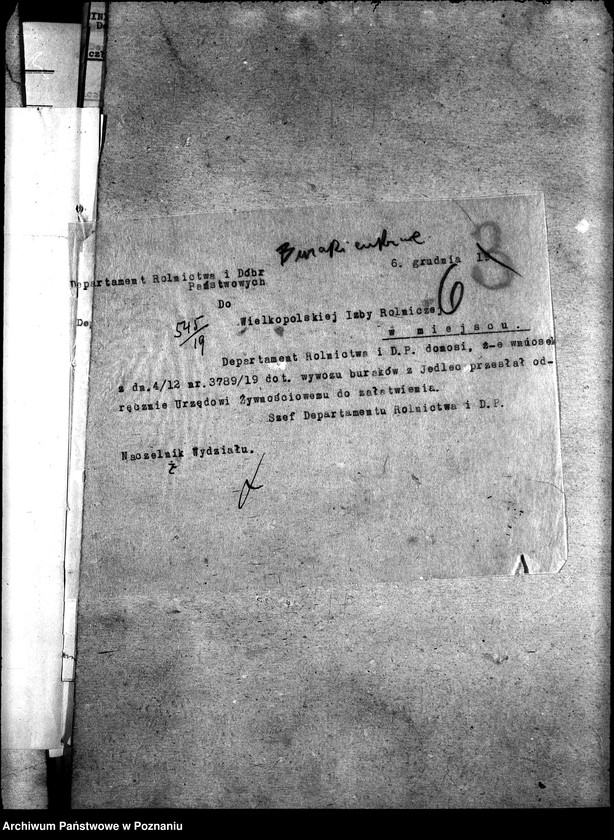 Buraki cukrowe
6. grudnia 1
3
Departament Rolnictwa i Dóbr
Państwowych
6
Do
De
545/19
Wielkopolskiej Izby Rolniczej
w miejscu.
Departament Rolnictwa i D.P. donosi, ż-e wniosek
z dn.4/12 nr.3789/19 dot. wywozu buraków z Jedlec przesłał od-
ręcznie Urzędowi Żywnościowemu do załatwienia.
Szef Departamentu Rolnictwa i D.P.
Naczelnik Wydziału.
ż
Archiwum Państwowe w Poznaniu